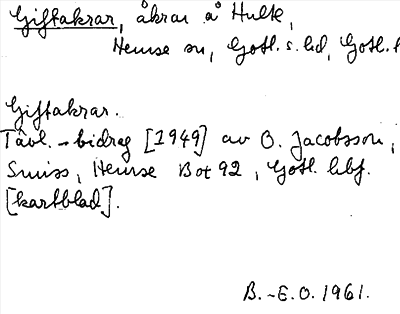 Giftakrar, åkrar å Hulte,
Hemse sn, Gotl. s. hd, Gotl. l
Giftakrar.
Tävl.-bidrag [1949] av O. Jacobsson,
Smiss, Hemse Bot 92, Gotl. hbf.
[kartblad].
B.-E.O. 1961.